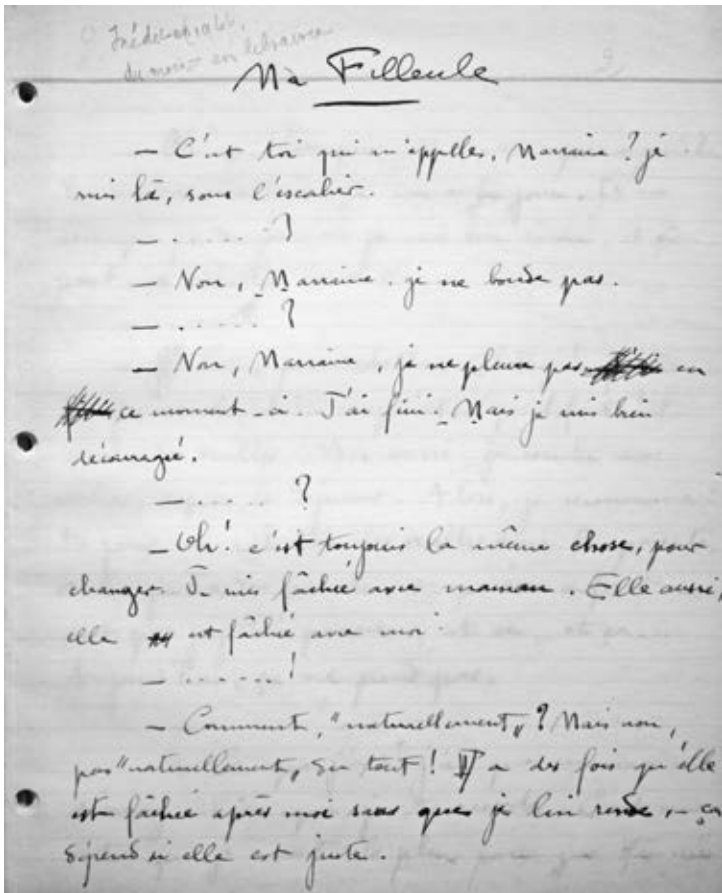 Inédit
du moins en librairie
9
Ma Filleule
— C'est toi qui m'appelles, Marraine ? je
suis là, sous l'escalier.
— . . . . . ?
— Non, Marraine, je ne boude pas.
— . . . . . ?
— Non, Marraine, je ne pleure pas en
ce moment-ci. J'ai fini. Mais je suis bien
découragée.
— . . . . . ?
— Oh ! c'est toujours la même chose, pour
changer. Je suis fâchée avec maman. Elle aussi,
elle est fâchée avec moi.
— . . . . . . !
— Comment, "naturellement" ? Mais non,
pas "naturellement" du tout ! Y a des fois qu'elle
est fâchée après moi sans que je lui rende, — ça
dépend si elle est juste.